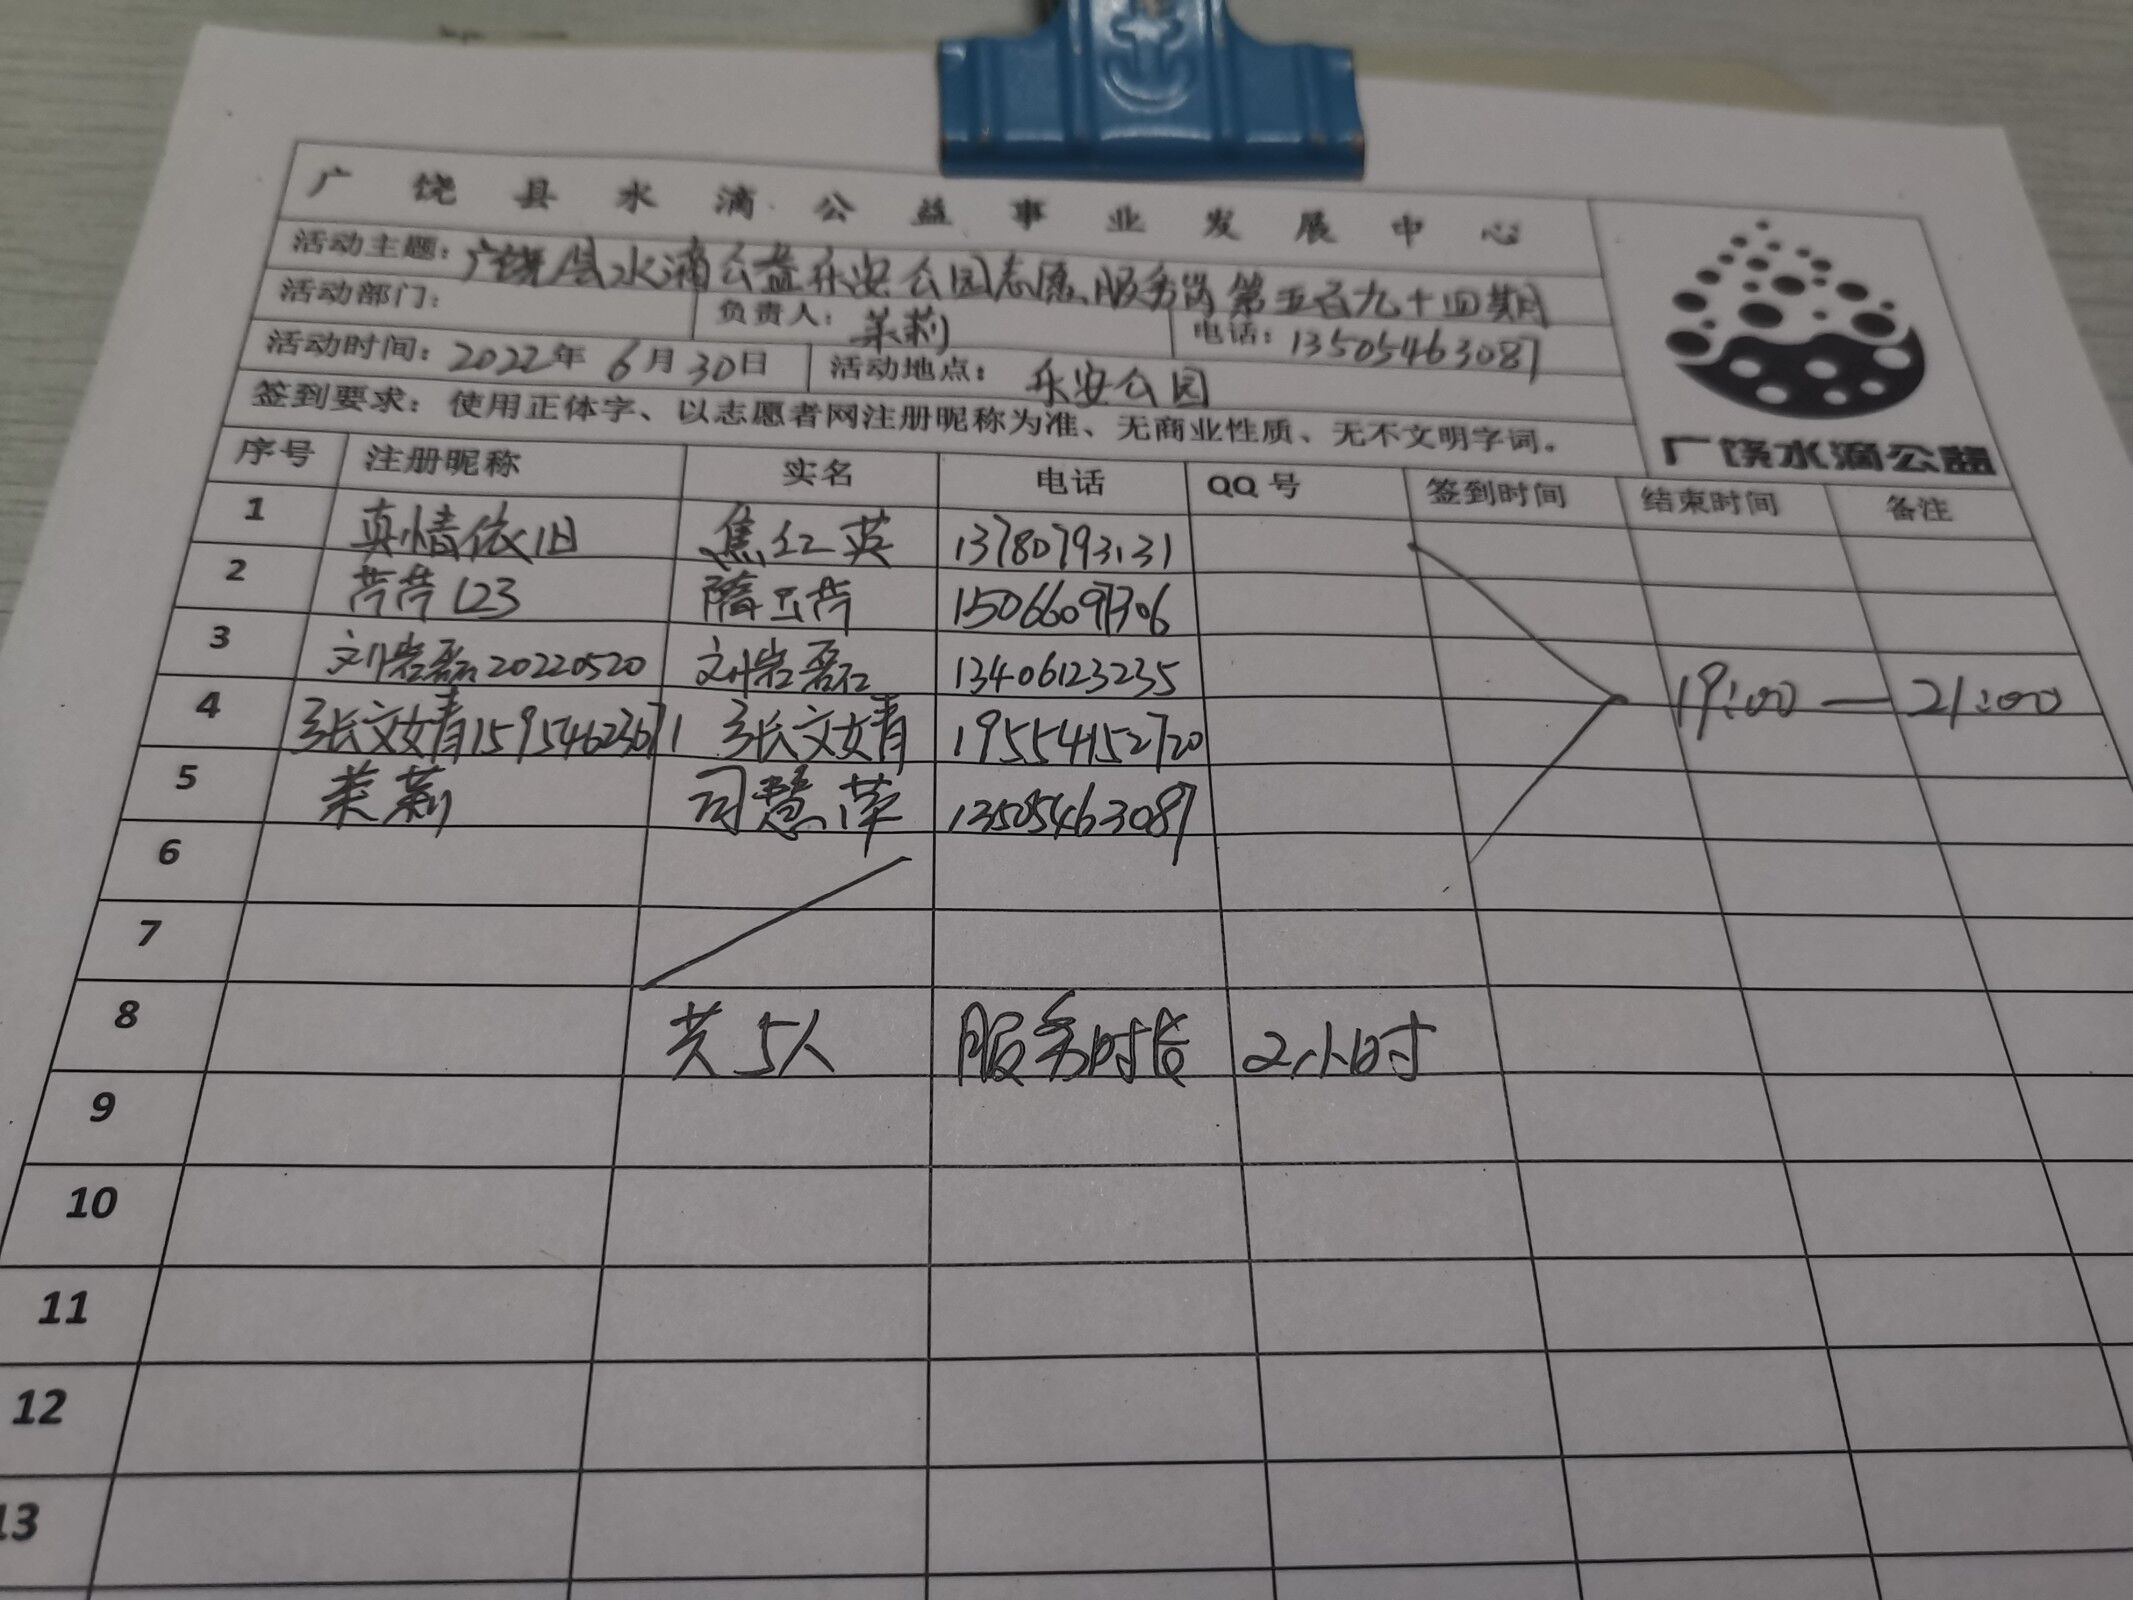 广饶县水滴公益事业发展中心
活动主题：广饶县水滴公益乐安公园志愿服务岗第五百九十四期
活动部门： 负责人：茉莉 电话：13505463087
活动时间：2022年6月30日 活动地点：乐安公园
签到要求：使用正体字、以志愿者网注册昵称为准、无商业性质、无不文明字词。
广饶水滴公益
序号 注册昵称 实名 电话 QQ号 签到时间 结束时间 备注
1 真情依旧 焦红英 13780793131
2 芹芹123 隋卫芹 15066097306
3 刘岩磊20220520 刘岩磊 13406123235
19:00—21:00
4 张文婧15954623671 张文婧 19554152720
5 茉莉 司慧萍 13505463087
6
7
8 共5人 服务时长 2小时
9
10
11
12
13